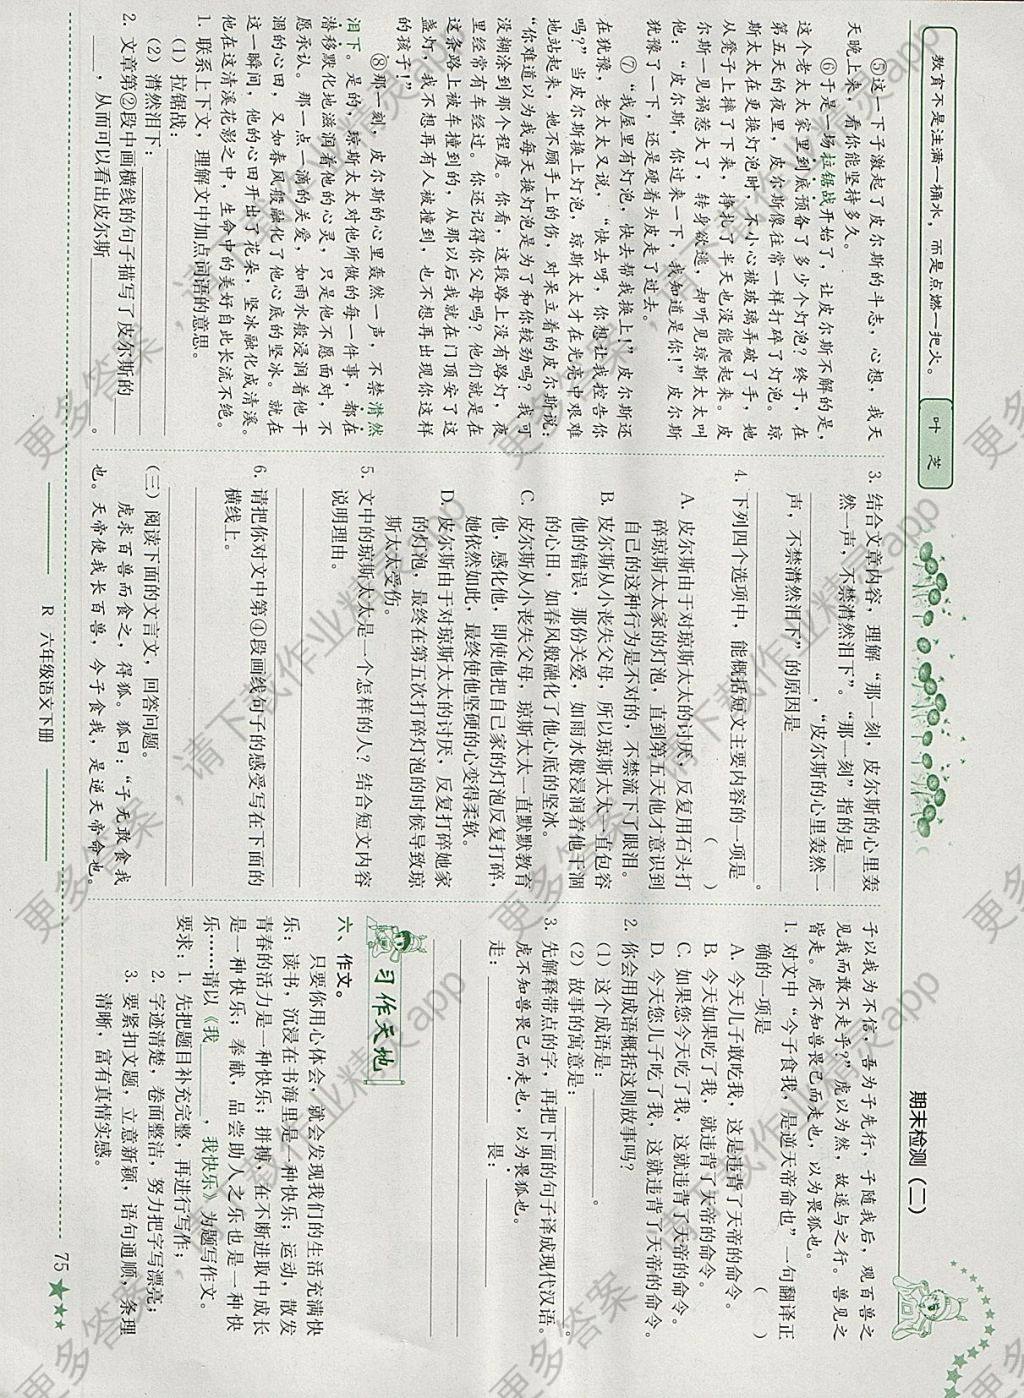 教育不是注满一桶水，而是点燃一把火。
叶 芝
期末检测（二）
⑤这一下子激起了皮尔斯的斗志，心想，我天
天晚上来，看你能坚持多久。
⑥于是一场拉锯战开始了，让皮尔斯不解的是，
这个老太太家里到底预备了多少个灯泡？终于，在
第五天的夜里，皮尔斯像往常一样打碎了灯泡。琼
斯太太在更换灯泡时，不小心被玻璃弄破了手，她
从凳子上摔了下来，挣扎了半天也没能爬起来。皮
尔斯一见祸惹大了，转身欲逃，却听见琼斯太太叫
他：“皮尔斯，你过来一下，我知道是你！”皮尔斯
犹豫了一下，还是硬着头皮走了过去。
⑦“我屋里有灯泡，快去帮我换上！”皮尔斯还
在犹豫，老太太又说，“快去呀，你想让我控告你
吗？”当皮尔斯换上灯泡，琼斯太太才在光亮中艰难
地站起来，她不顾手上的伤，对呆立着的皮尔斯说：
“你难道以为我每天换灯泡是为了和你较劲吗？我可
没糊涂到那个程度。你看，这段路上没有路灯，夜
里经常有车经过。你还记得你父母吗？他们就是在
这条路上被车撞到的，从那以后我就在门顶安了这
盏灯，我不想再有人被撞到，也不想再出现你这样
的孩子！”
⑧那一刻，皮尔斯的心里轰然一声，不禁潸然
泪下。是的，琼斯太太对他所做的每一件事，都在
潜移默化地滋润着他的心灵，只是他不愿面对，不
愿承认。那一点一滴的关爱，如雨水般浸润着他干
涸的心田，又如春风般融化了他心底的坚冰。就在
这一瞬间，他的心田开出了花朵，坚冰融化成清溪。
他在这清溪花影之中，生命中的美好自此长流不绝。
1. 联系上下文，理解文中加点词语的意思。
（1）拉锯战：
（2）潸然泪下：
2. 文章第②段中画横线的句子描写了皮尔斯的
，从而可以看出皮尔斯 。
3. 结合文章内容，理解“那一刻，皮尔斯的心里轰
然一声，不禁潸然泪下”。“那一刻”指的是
，“皮尔斯的心里轰然一
声，不禁潸然泪下”的原因是
。
4. 下列四个选项中，能概括短文主要内容的一项是
（ ）
A. 皮尔斯由于对琼斯太太的讨厌，反复用石头打
碎琼斯太太家的灯泡，直到第五天他才意识到
自己的这种行为是不对的，不禁流下了眼泪。
B. 皮尔斯从小丧失父母，所以琼斯太太一直包容
他的错误，那份关爱，如雨水般浸润着他干涸
的心田，如春风般融化了他心底的坚冰。
C. 皮尔斯从小丧失父母，琼斯太太一直默默教育
他，感化他，即使他把自己家的灯泡反复打碎，
她依然如此，最终使他坚硬的心变得柔软。
D. 皮尔斯由于对琼斯太太的讨厌，反复打碎她家
的灯泡，最终在第五次打碎灯泡的时候导致琼
斯太太受伤。
5. 文中的琼斯太太是一个怎样的人？结合短文内容
说明理由。
6. 请把你对文中第④段画线句子的感受写在下面的
横线上。
（三）阅读下面的文言文，回答问题。
虎求百兽而食之，得狐。狐曰：“子无敢食我
也。天帝使我长百兽，今子食我，是逆天帝命也。
子以我为不信，吾为子先行，子随我后，观百兽之
见我而敢不走乎？”虎以为然，故遂与之行。兽见之
皆走。虎不知兽畏己而走也，以为畏狐也。
1. 对文中“今子食我，是逆天帝命也”一句翻译正
确的一项是 （ ）
A. 今天儿子敢吃我，这是违背了天帝的命令。
B. 今天如果吃了我，就违背了天帝的命令。
C. 如果您今天吃了我，这就违背了天帝的命令。
D. 今天您儿子吃了我，这就违背了天帝的命令。
2. 你会用成语概括这则故事吗？
（1）这个成语是： 。
（2）故事的寓意是： 。
3. 先解释带点的字，再把下面的句子译成现代汉语。
虎不知兽畏己而走也，以为畏狐也。
走： 畏：
习作天地
六、作文。
只要你用心体会，就会发现我们的生活充满快
乐：读书，沉浸在书海里是一种快乐；运动，散发
青春的活力是一种快乐；拼搏，在不断进取中成长
是一种快乐；奉献，品尝助人之乐也是一种快
乐……请以《我 ，我快乐》为题写作文。
要求：1. 先把题目补充完整，再进行写作；
2. 字迹清楚，卷面整洁，努力把字写漂亮；
3. 要紧扣文题，立意新颖，语句通顺，条理
清晰，富有真情实感。
R 六年级语文下册
75
更多答案，请下载作业精灵app